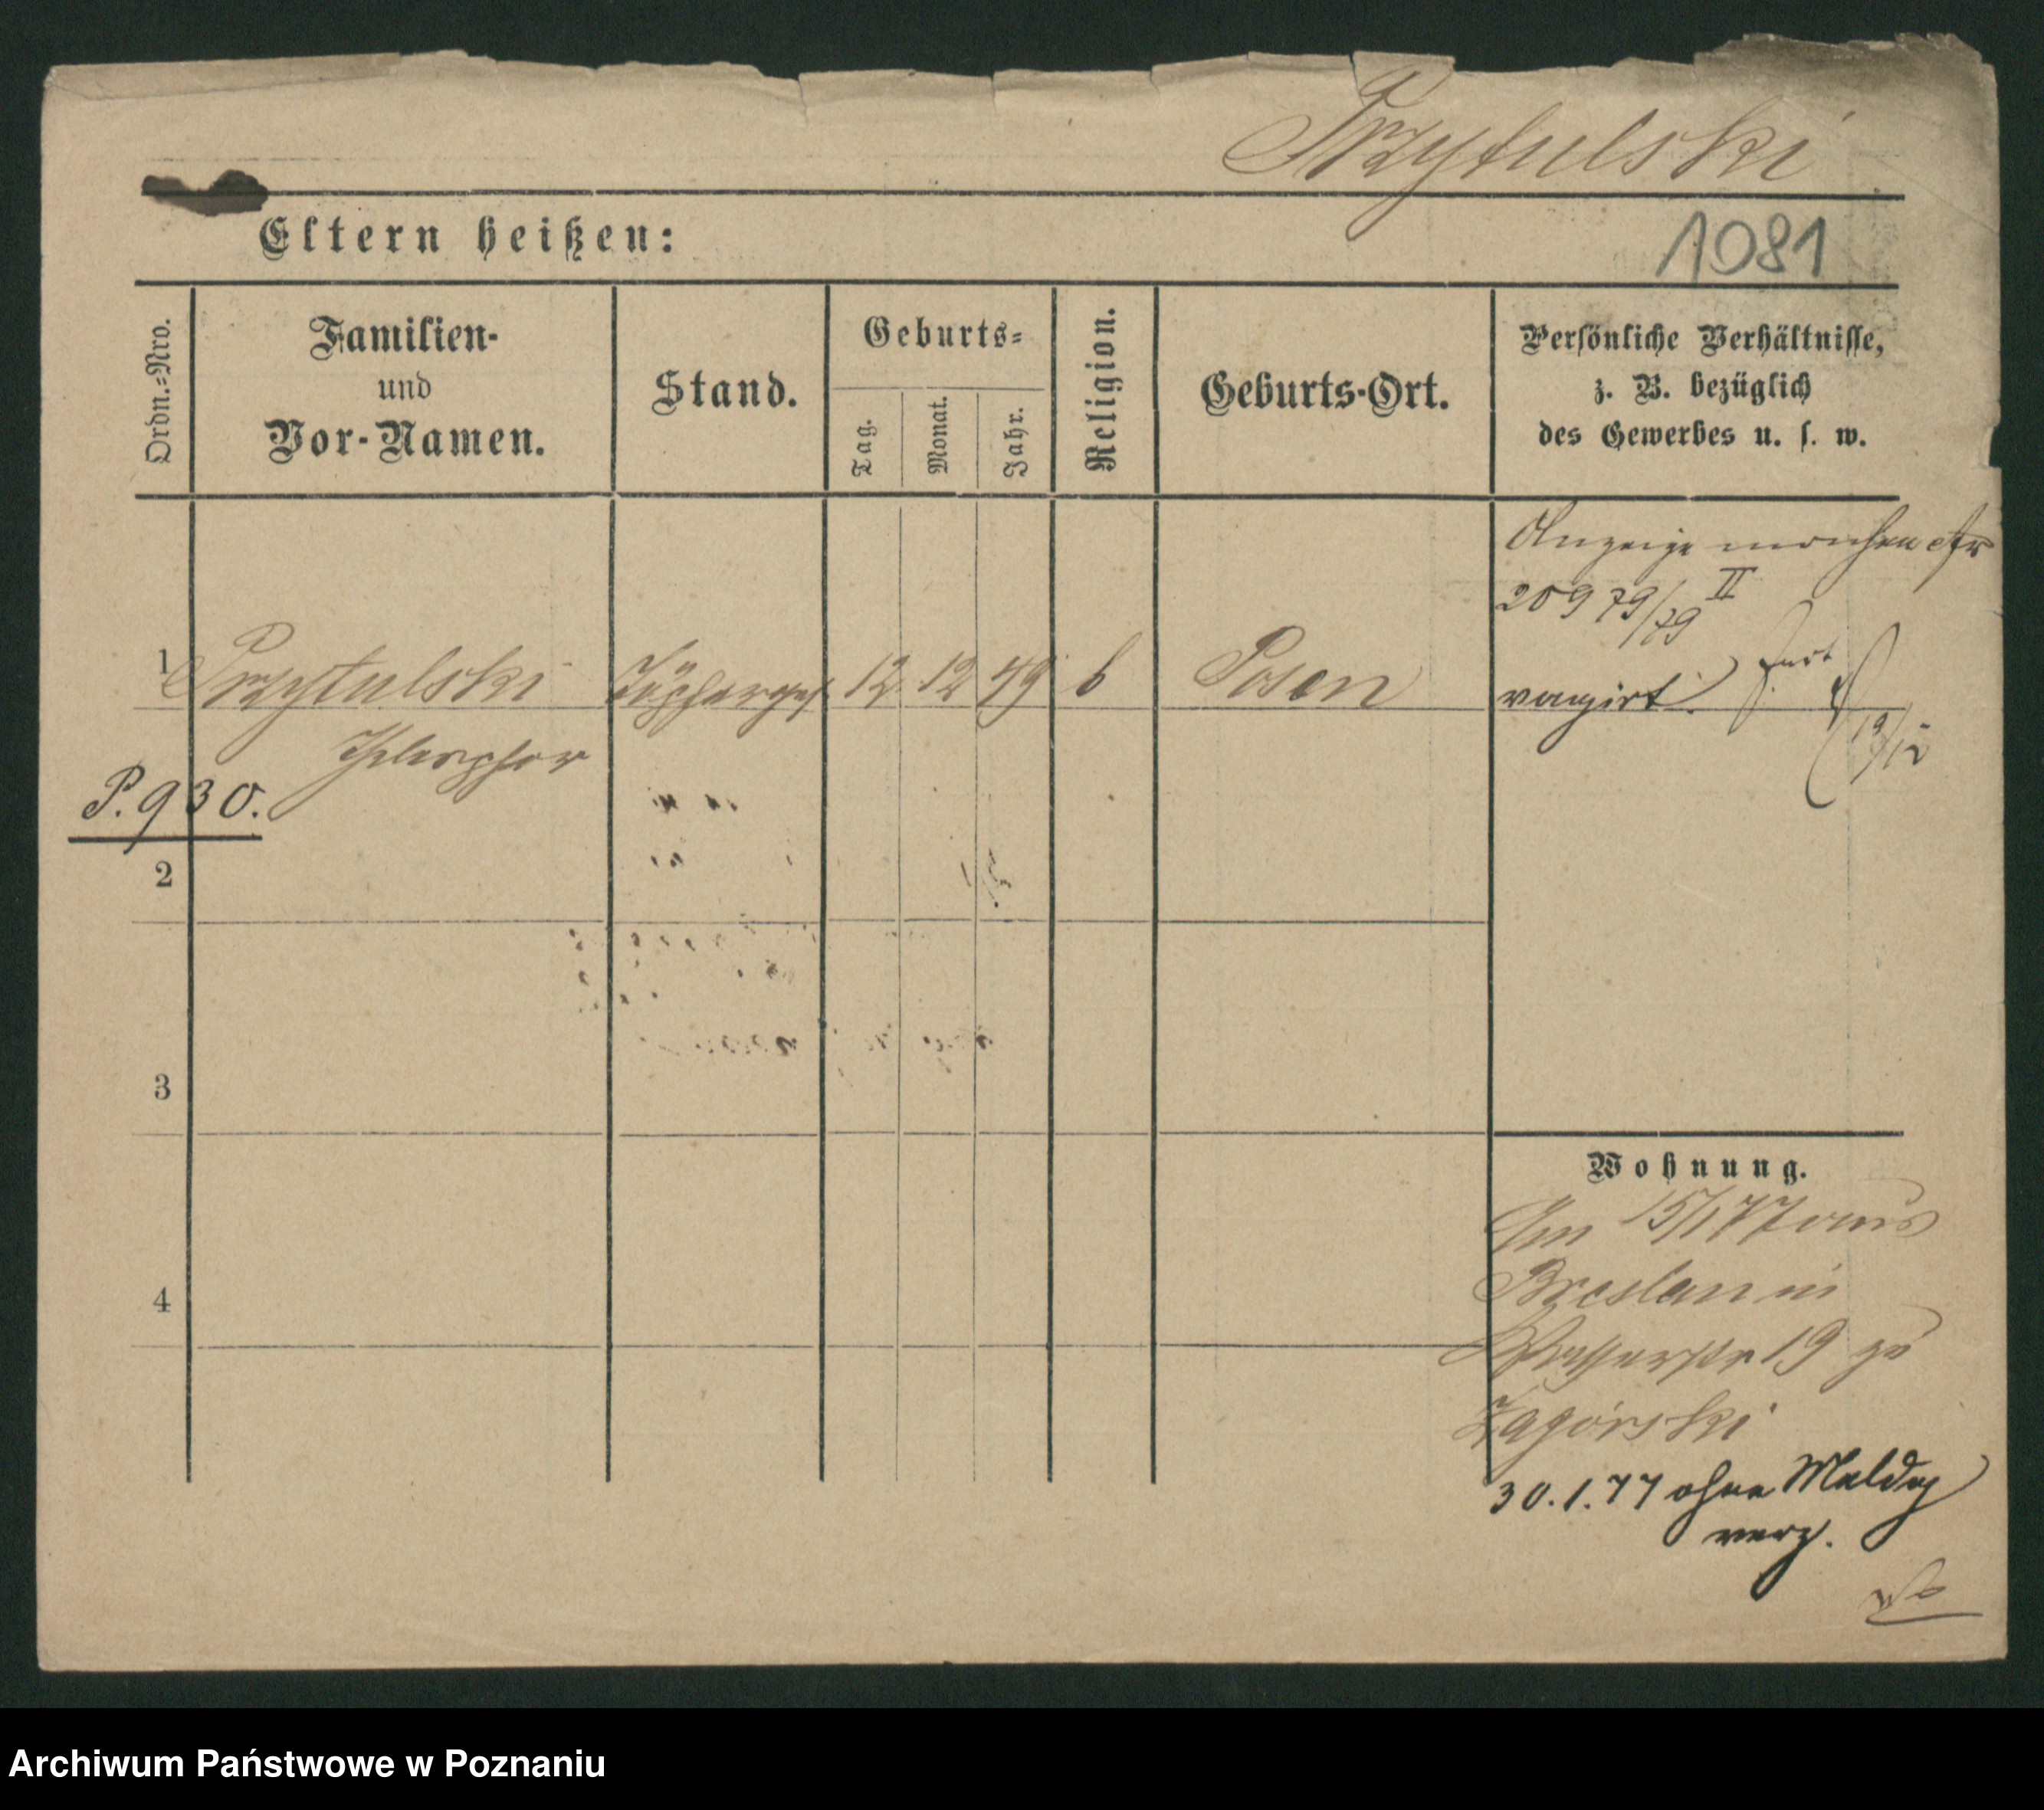 Przytulski
Eltern heißen:
1081
Ordn.=Nro.
Familien-
und
Vor-Namen.
Stand.
Geburts=
Tag.
Monat.
Jahr.
Religion.
Geburts-Ort.
Persönliche Verhältnisse,
z. B. bezüglich
des Gewerbes u. s. w.
Anzeige machen
20979/79 II
1 Przytulski Töpferges 12 12 49 k Posen
vagirt.
Thelesphor
P. 930.
2
3
4
Wohnung.
Am 15/1 77 aus
Breslau in
19 zu
Zagórski
30.1.77 ohne Meldg
verz.
Archiwum Państwowe w Poznaniu